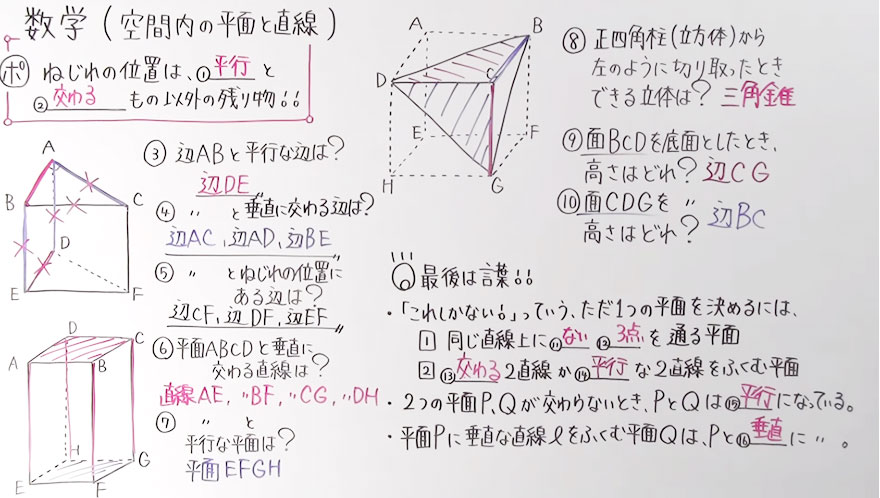 数学(空間内の平面と直線)
ポ ねじれの位置は、①平行と
②交わるもの以外の残り物!!
A
B
C
D
E
F
③ 辺ABと平行な辺は?
辺DE〃
④ 〃 と垂直に交わる辺は?
辺AC、辺AD、辺BE〃
⑤ 〃 とねじれの位置に
ある辺は?
辺CF、辺DF、辺EF〃
D
C
A
B
H
G
E
F
⑥ 平面ABCDと垂直に
交わる直線は?
直線AE、〃BF、〃CG、〃DH
⑦ 〃 と
平行な平面は?
平面EFGH
A
B
D
C
E
F
H
G
⑧ 正四角柱(立方体)から
左のように切り取ったとき
できる立体は? 三角錐
⑨ 面BCDを底面としたとき、
高さはどれ? 辺CG
⑩ 面CDGを 〃
高さはどれ? 辺BC
最後は言葉!!
・「これしかない!」っていう、ただ1つの平面を決めるには、
1 同じ直線上に⑪ない ⑫3点を通る平面
2 ⑬交わる2直線か⑭平行な2直線をふくむ平面
・2つの平面P、Qが交わらないとき、PとQは⑮平行になっている。
・平面Pに垂直な直線ℓをふくむ平面Qは、Pと⑯垂直に 〃 。